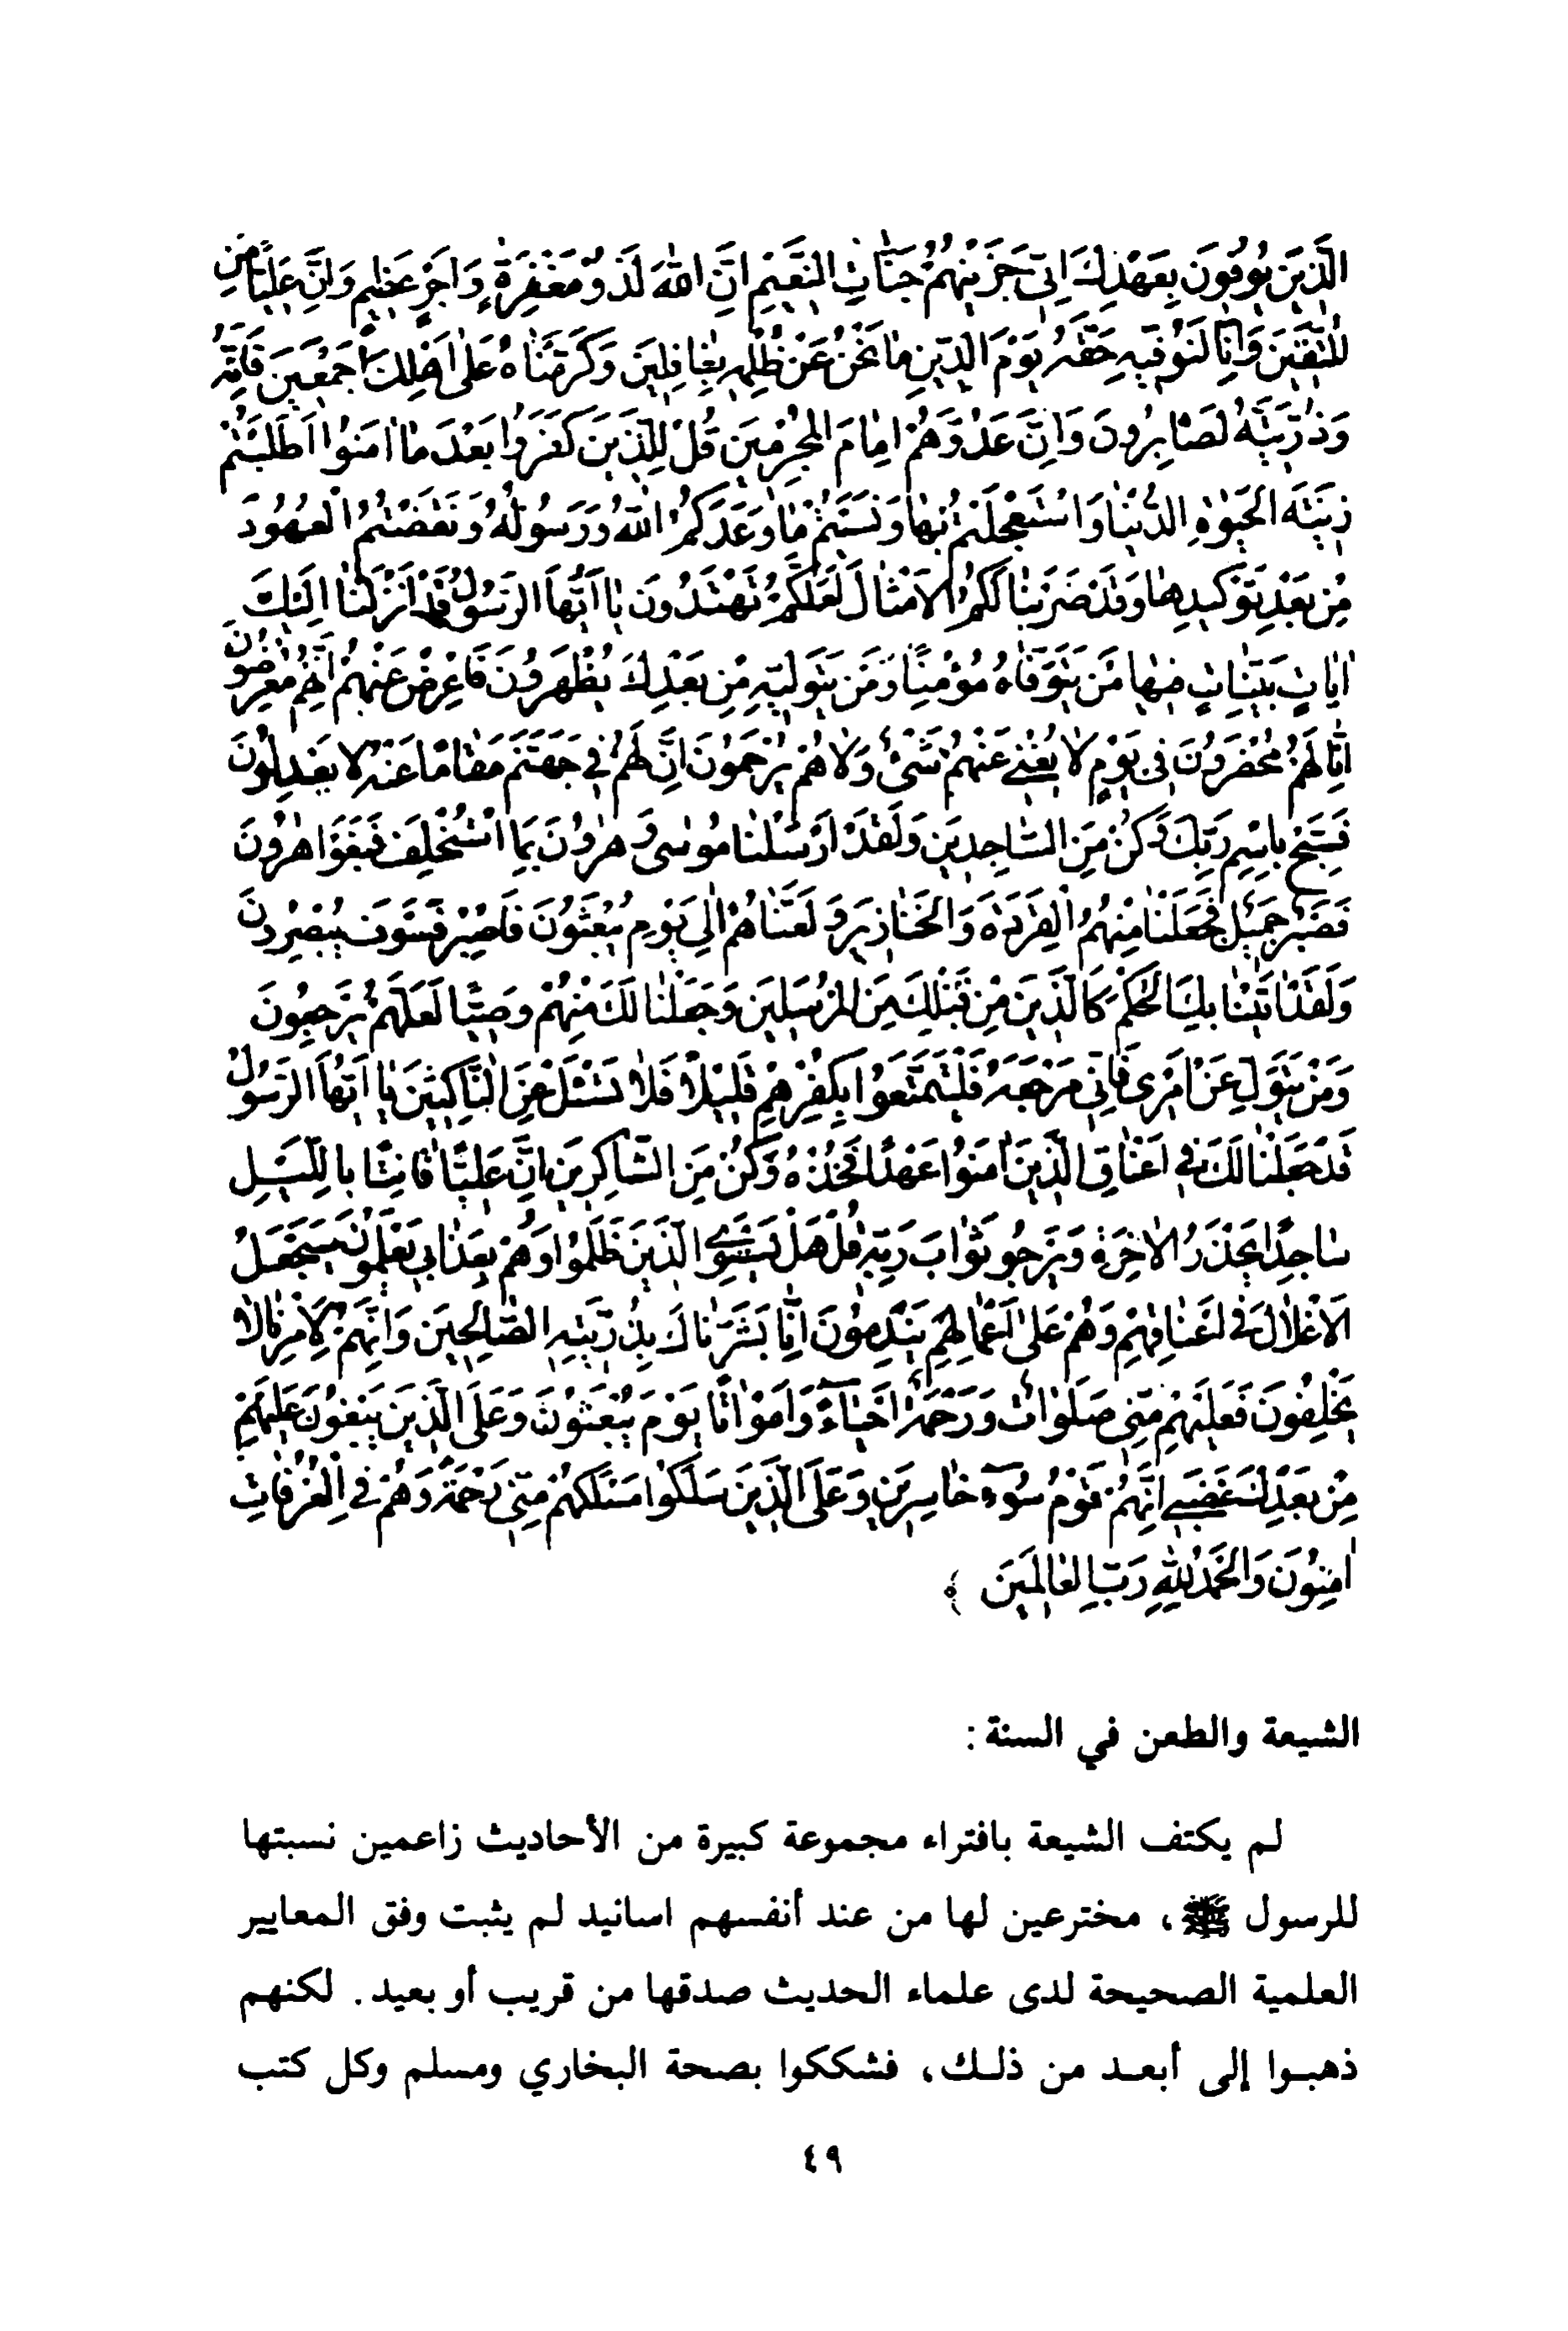 الَّذِينَ يُوفُونَ بِعَهْدِكَ اِنِّى جَزَيْتُهُمْ جَنَّاتِ النَّعِيمِ اِنَّ اللهَ لَذُو مَغْفِرَةٍ وَاَجْرٍ عَظِيمٍ وَاِنَّ عَلِيًّا مِنَ
الْمُتَّقِينَ وَاِنَّا لَنُوَفِّيهِ حَقَّهُ يَوْمَ الدِّينِ مَا نَحْنُ عَنْ ظُلْمِهِ بِغَافِلِينَ وَكَرَّمْنَاهُ عَلَى اَهْلِكَ اَجْمَعِينَ فَاِنَّهُ
وَذُرِّيَّتَهُ لَصَابِرُونَ وَاِنَّ عَدُوَّهُمْ اِمَامُ الْمُجْرِمِينَ قُلْ لِلَّذِينَ كَفَرُوا بَعْدَ مَا اٰمَنُوا اَطَلَبْتُمْ
زِينَةَ الْحَيٰوةِ الدُّنْيَا وَاسْتَعْجَلْتُمْ بِهَا وَنَسِيتُمْ مَا وَعَدَكُمُ اللهُ وَرَسُولُهُ وَنَقَضْتُمُ الْعُهُودَ
مِنْ بَعْدِ تَوْكِيدِهَا وَقَدْ ضَرَبْنَا لَكُمُ الْاَمْثَالَ لَعَلَّكُمْ تَهْتَدُونَ يَا اَيُّهَا الرَّسُولُ قَدْ اَنْزَلْنَا اِلَيْكَ
اٰيَاتٍ بَيِّنَاتٍ فِيهَا مَنْ يَتَوَفَّاهُ مُؤْمِنًا وَمَنْ يَتَوَلَّيْهِ مِنْ بَعْدِكَ يُظْهَرُونَ فَاَعْرِضْ عَنْهُمْ اِنَّهُمْ مُعْرِضُونَ
اِنَّا لَهُمْ مُحْضِرُونَ فِى يَوْمٍ لَا يُغْنِى عَنْهُمْ شَىْءٌ وَلَا هُمْ يُرْحَمُونَ اِنَّ لَهُمْ فِى جَهَنَّمَ مَقَامًا عَنْهُ لَا يَعْدِلُونَ
فَسَبِّحْ بِاسْمِ رَبِّكَ وَكُنْ مِنَ السَّاجِدِينَ وَلَقَدْ اَرْسَلْنَا مُوسَى وَهٰرُونَ بِمَا اسْتُخْلِفَ فَبَغَوْا هٰرُونَ
فَصَبْرٌ جَمِيلٌ فَجَعَلْنَا مِنْهُمُ الْقِرَدَةَ وَالْخَنَازِيرَ وَلَعَنَّاهُمْ اِلٰى يَوْمِ يُبْعَثُونَ فَاصْبِرْ فَسَوْفَ يُبْصِرُونَ
وَلَقَدْ اٰتَيْنَا بِكَ الْحُكْمَ كَالَّذِينَ مِنْ قَبْلِكَ مِنَ الْمُرْسَلِينَ وَجَعَلْنَا لَكَ مِنْهُمْ وَصِيًّا لَعَلَّهُمْ يَرْجِعُونَ
وَمَنْ يَتَوَلَّ عَنْ اَمْرِى فَاِنِّى مَرْجَعُهُ فَلْيَتَمَتَّعُوا بِكُفْرِهِمْ قَلِيلًا فَلَا تَسْئَلْ عَنِ النَّاكِثِينَ يَا اَيُّهَا الرَّسُولُ
قَدْ جَعَلْنَا لَكَ فِى اَعْنَاقِ الَّذِينَ اٰمَنُوا عَهْدًا فَخُذْهُ وَكُنْ مِنَ الشَّاكِرِينَ اِنَّ عَلِيًّا قَانِتًا بِاللَّيْلِ
سَاجِدًا يَحْذَرُ الْاٰخِرَةَ وَيَرْجُو ثَوَابَ رَبِّهِ قُلْ هَلْ يَسْتَوِى الَّذِينَ ظَلَمُوا وَهُمْ بِعَذَابِى يَعْلَمُونَ سَيُجْعَلُ
الْاَغْلَالُ فِى اَعْنَاقِهِمْ وَهُمْ عَلَى اَعْمَالِهِمْ يَنْدَمُونَ اِنَّا بَشَّرْنَاكَ بِذُرِّيَّتِهِ الصَّالِحِينَ وَاِنَّهُمْ لِاَمْرِنَا لَا
يَخْلِفُونَ فَعَلَيْهِمْ مِنِّى صَلَوَاتٌ وَرَحْمَةٌ اَحْيَاءً وَاَمْوَاتًا يَوْمَ يُبْعَثُونَ وَعَلَى الَّذِينَ يَبْغُونَ عَلَيْهِمْ
مِنْ بَعْدِكَ غَضَبِى اِنَّهُمْ قَوْمُ سُوءٍ خَاسِرِينَ وَعَلَى الَّذِينَ سَلَكُوا مَسْلَكَهُمْ مِنِّى رَحْمَةٌ وَهُمْ فِى الْغُرُفَاتِ
اٰمِنُونَ وَالْحَمْدُ لِلّٰهِ رَبِّ الْعَالَمِينَ ﴾
الشيعة والطعن في السنة :
لم يكتف الشيعة بافتراء مجموعة كبيرة من الأحاديث زاعمين نسبتها
للرسول ﷺ، مخترعين لها من عند أنفسهم اسانيد لم يثبت وفق المعايير
العلمية الصحيحة لدى علماء الحديث صدقها من قريب أو بعيد. لكنهم
ذهبوا إلى أبعد من ذلك، فشككوا بصحة البخاري ومسلم وكل كتب
٤٩